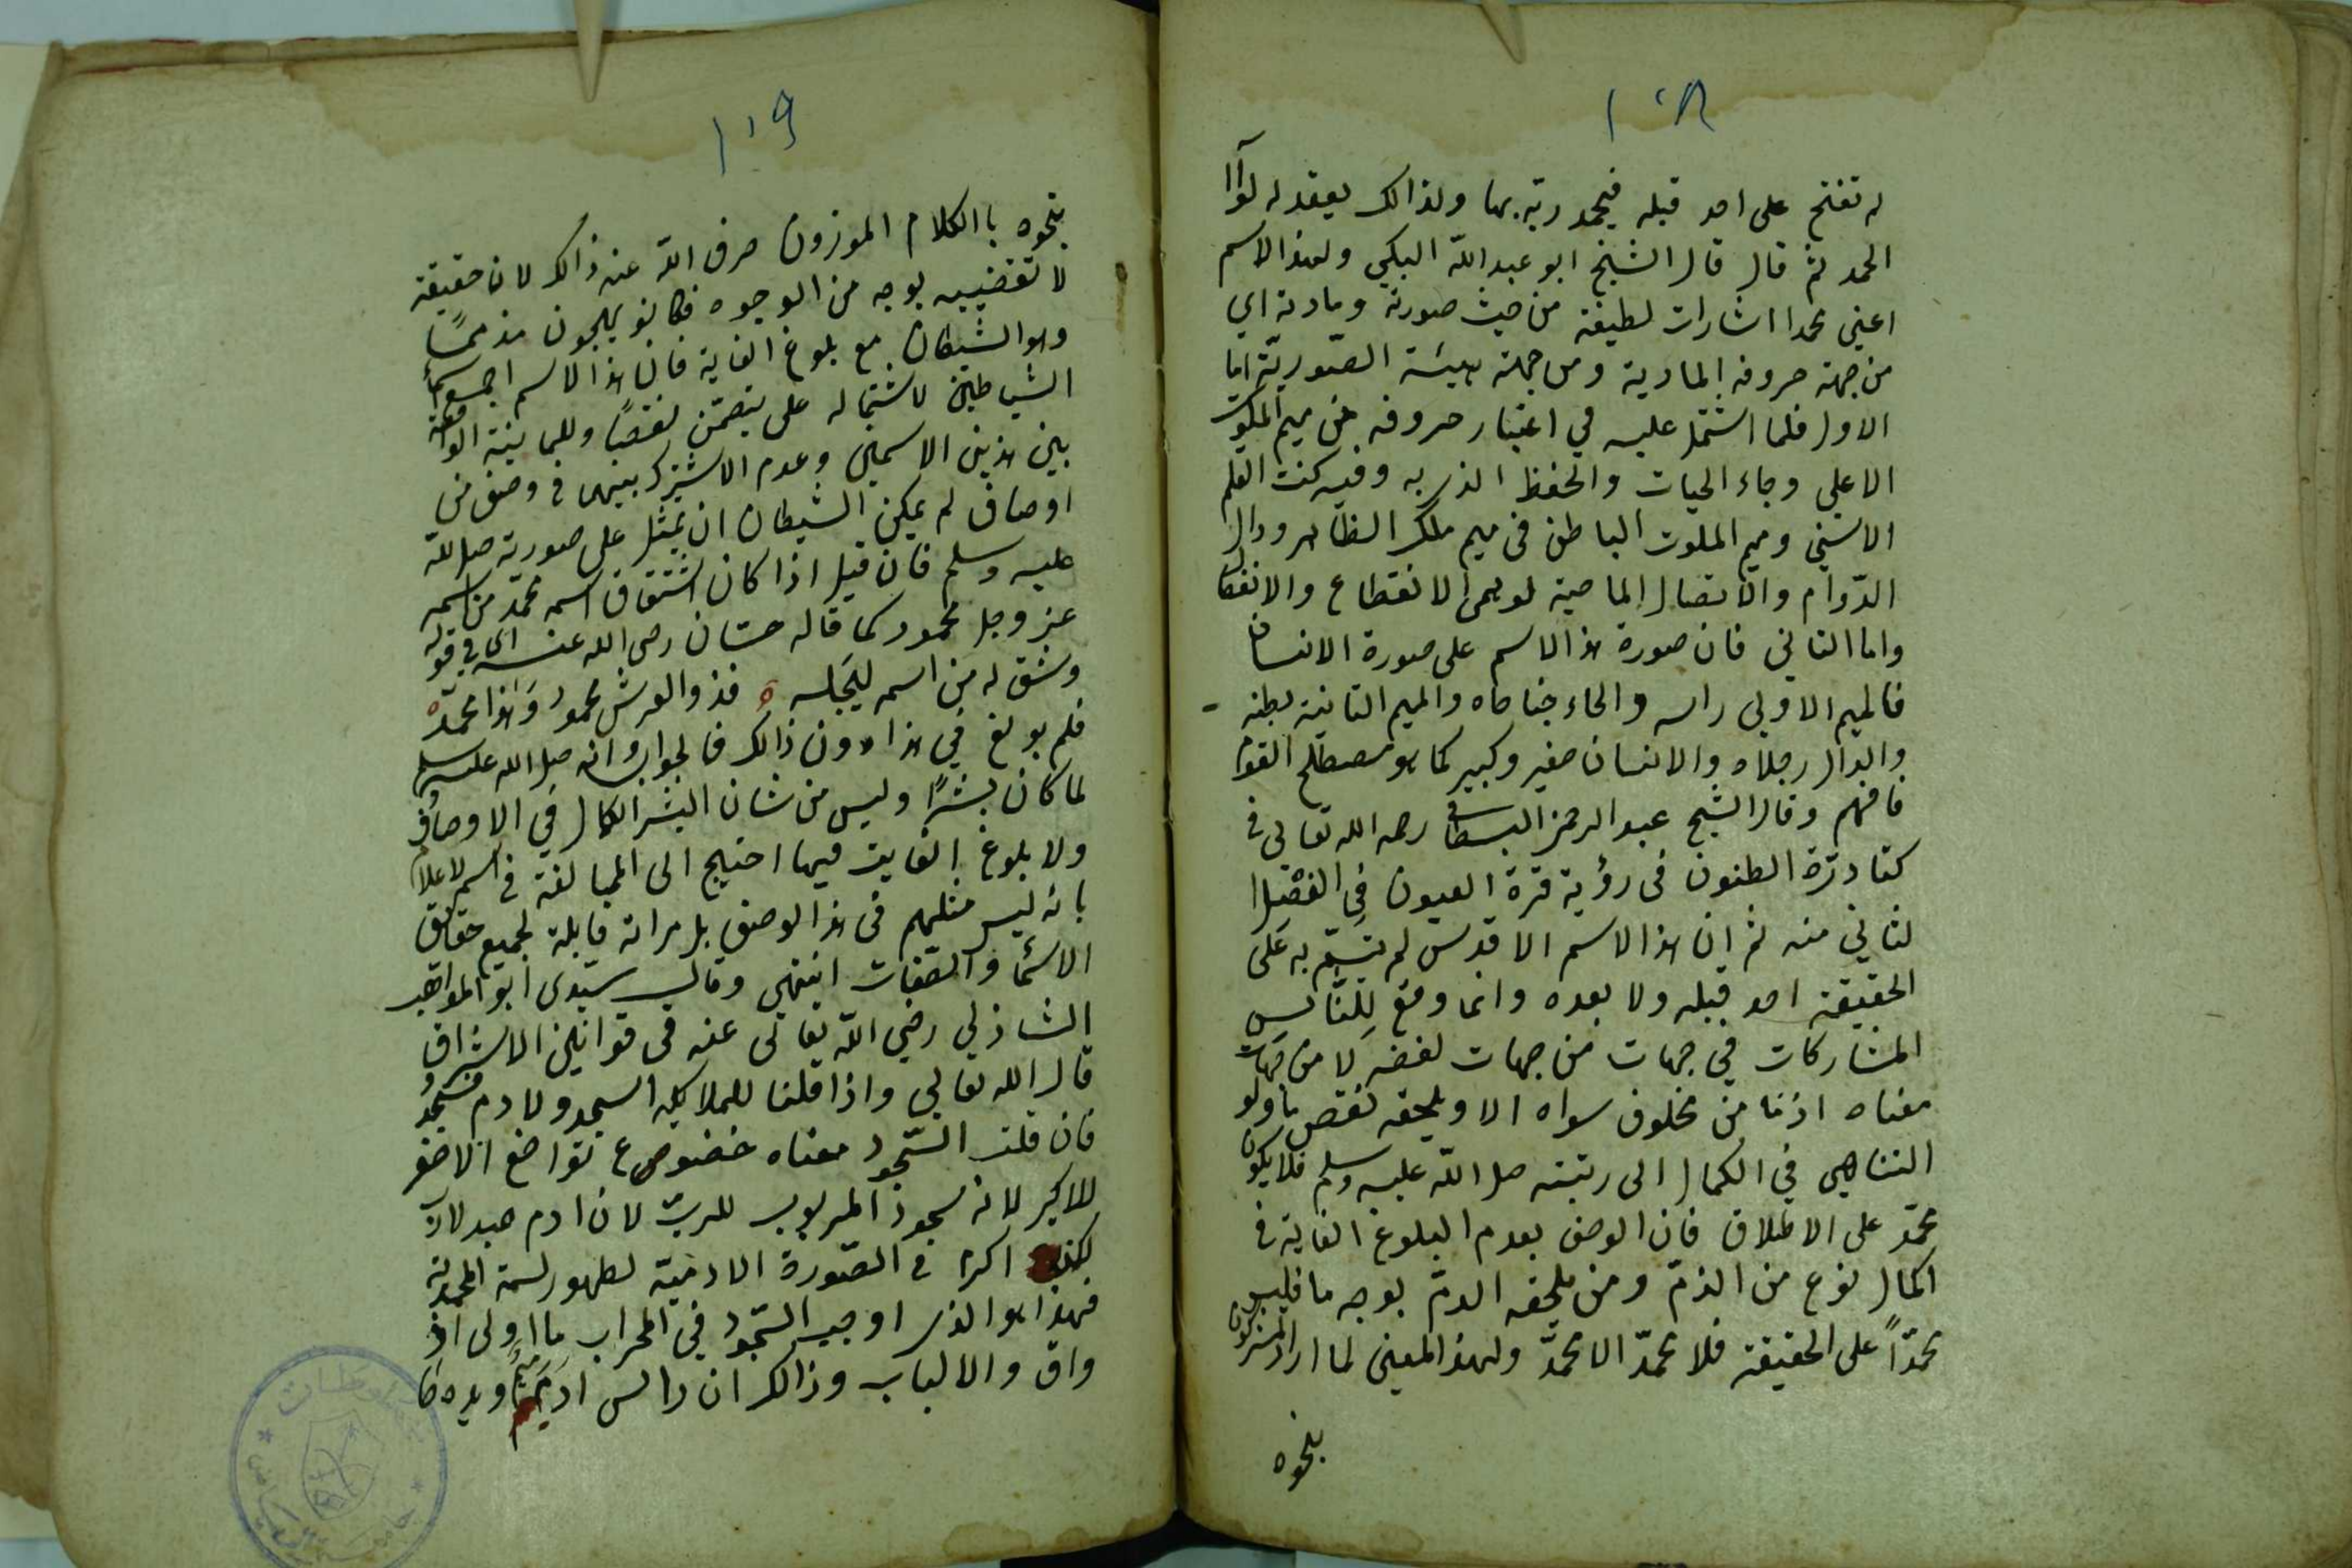 ١٠٨
له تفتح على احد قبله فيحمد ربه بها ولذالك يعقد له لوآا
الحمد ثم قال قال الشيخ ابو عبد الله البكي ولهذ الاسم
اعني محمدا اشارات لطيفة من حيث صورته ومادته اي
من جهة حروفه المادية ومن جهة هيئته الصّوريّة اما
الاول فلما اشتمل عليه في اعتبار حروفه من ميم الملكوت
الاعلي وحاء الحيات والحفظ الذى به وفيه كنت القلم
الاسني وميم الملوت الباطن في ميم ملك الظاهر ودال
الدّوام والاتصال الماحية لوهمى الانقطاع والانفصال
واما الثاني فان صورة هذ الاسم على صورة الانسان
فالميم الاولي راسه والحاء جناحاه والميم الثانية بطنه
والدال رجلاه والانسان صغير وكبير كما هو مصطلح القوم
فافهم وقال الشيخ عبد الرحمن البسطامى رحمه الله تعالي في
كتا درّة الظنون في رؤية قرة العيون في الفصل ا
لثاني منه ثم ان هذ الاسم الاقدس لم يتسمّ به على
الحقيقة احد قبله ولا بعده وانما وقع للنّاس
المشاركات في جهات من جهات لفضه لا من جهات
معناه اذ ما من مخلوق سواه الا ويلحقه نقص ما ولو
التناهي في الكمال الى رتبته صل الله عليه وسلم فلا يكون
محمّد على الاطلاق فان الوصف بعدم البلوغ الغاية في
اكمال نوع من الذمّ ومن يلحقه الذمّ بوجه ما فليس
محمّداً على الحقيقة فلا محمدّ الا محمدّ ولهذ المعنى لما اراد المشركون
بنجوه
١٠٩
بنجوه با الكلام الموزون صرف الله عنه ذالك لان حقيقته
لا تقتضييه بوجه من الوجوه فكانو يهجون مذممًا
وهو الشيطان مع بلوغ الغاية فان هذ الاسم اجمع اسمآء
الشياطين لاشتماله على يتضمّن نقصًا وللمباينة الواقعة
بين هذين الاسمين وعدم الاشترك بينهما في وصف من
اوصاف لم يمكن الشيطان ان يتمثل على صورته صل الله
عليه وسلم فان قيل اذا كان اشتقاق اسمه محمّد من اسمه
عز وجل محمود كما قاله حسّان رضى الله عنه اى في قوله
وشق له من اسمه ليجله ه فذو العرش محمود وهذا محمّد ه
فلم بولغ في هذا دون ذالك فالجواب انه صل الله عليه وسلم
لما كان بشرًا وليس من شان البشر الكمال في الاوصاف
ولا بلوغ الغايت فيها احتيج الى المبالغة في اسمه لاعلام
بانه ليس مثلهم في هذ الوصف بل مراته قابلة لجميع حقايق
الاسما والصّفات انتهى وقال سيدى ابو المواهب
الشاذلي رضي الله تعالى عنه في قوانين الاشراق
قال الله تعالي واذا قلنا للملايكه اسجدو لادم فسجدُ
فان قلت السّجود معناه خضوع تواضع الاصغر
للاكبر لانه سجود المربوب للربّ لان ادم عبد لارب
لكنه اكرم في الصّورة الادميّة لظهور لسمة المحمدية
فهذا هو الذى اوجب السّجود في المحراب ما اولى اذ
واق والالباب وذالك ان راس ادم ميم ويده حا